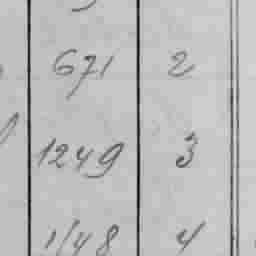 671 2
1249 3
1148 4